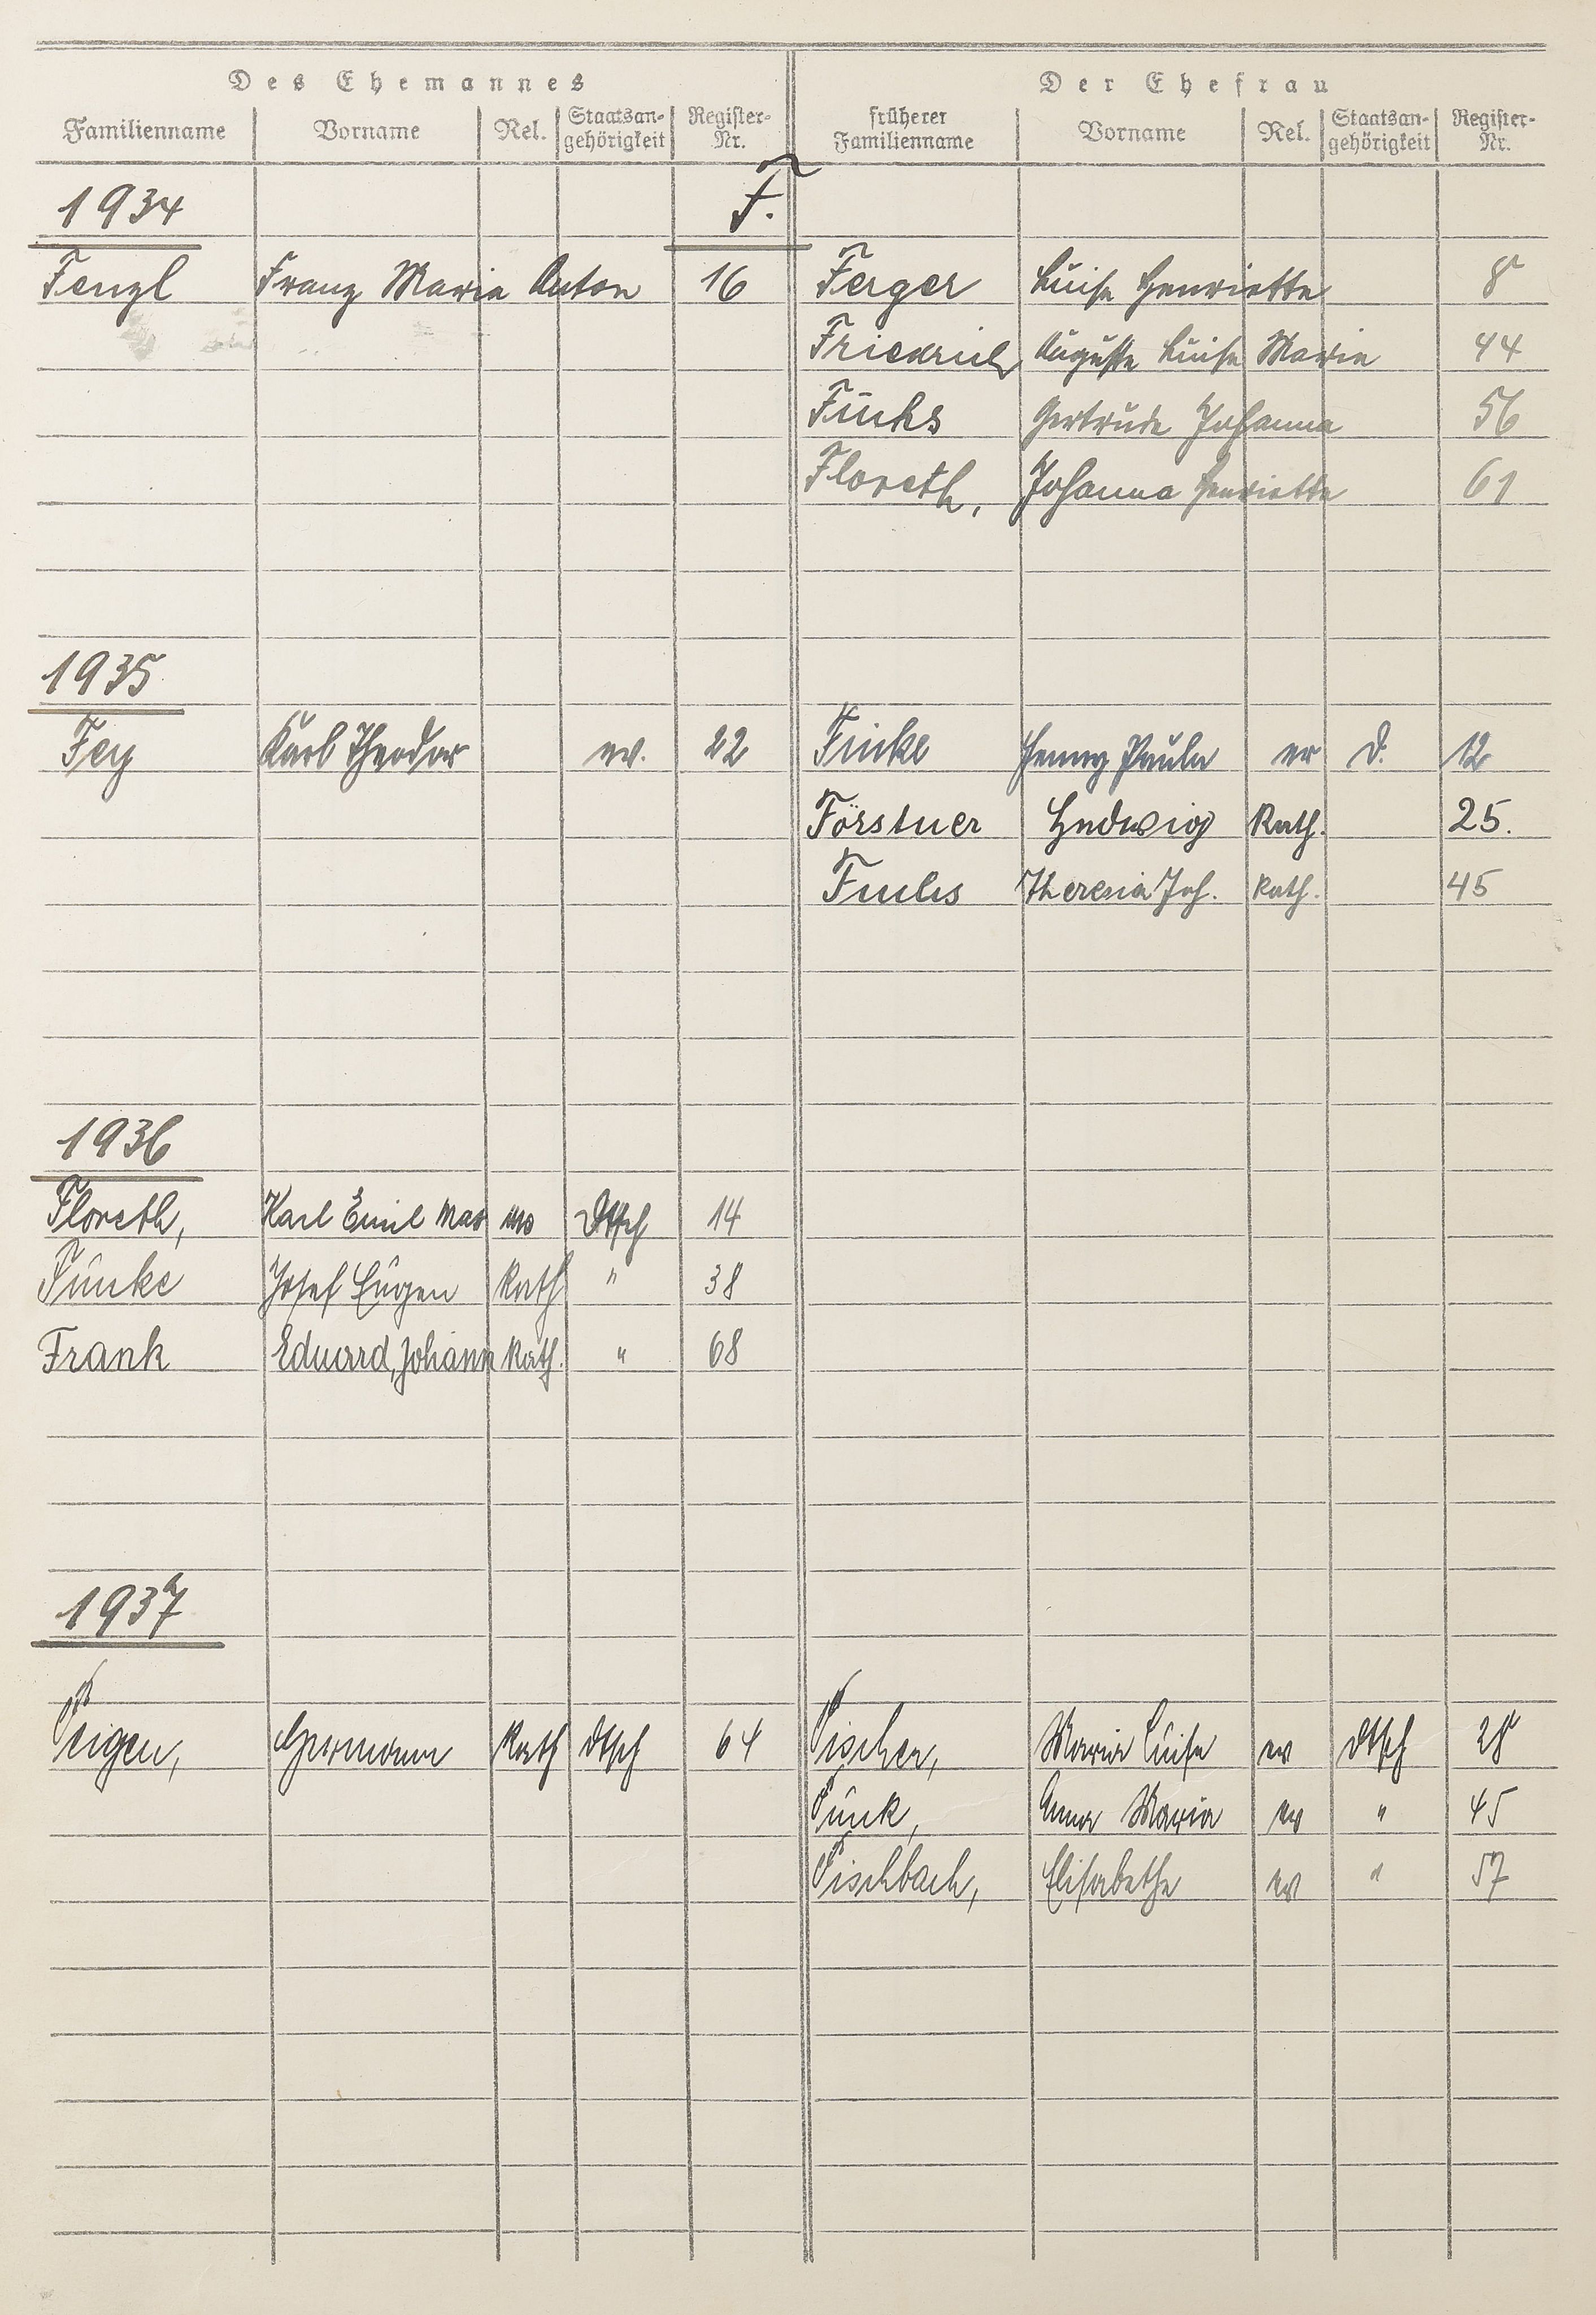 Des Ehemannes Der Ehefrau
Familienname Vorname Rel. Staatsan-gehörigkeit Register-Nr. früherer Familienname Vorname Rel. Staatsan-gehörigkeit Register-Nr.
1934 F.
Fenzl Franz Maria Anton 16 Ferger Luise Henriette 8
Friedrich Auguste Luise Maria 44
Fuchs Gertrude Johanna 56
Floreth, Johanna Henriette 61
1935
Fey Karl Theodor ev. 22 Fricke Henny Paula ev d. 12
Förstner Hedwig Kath. 25.
Fuchs Theresia Joh. Kath. 45
1936
Floreth, Karl Emil Max ev Dtsch 14
Funke Josef Eugen Kath " 38
Frank Eduard, Johann Kath. " 68
1937
Feigen, Hermann Kath dtsch 64 Fischer, Maria Luise ev dtsch 28
Funk, Anna Maria ev " 45
Fischbach, Elisabethe ev " 57